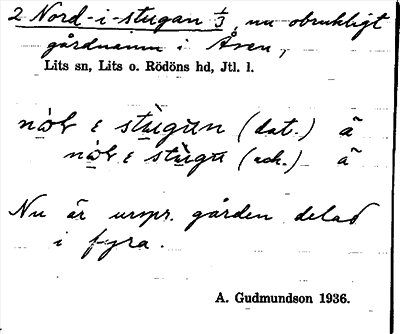 2 Nord-i-stugan 1/3, nu obrukligt
gårdnamn i Åsen,
Lits sn, Lits o. Rödöns hd, Jtl. l.
(dat.) ã
(ack.) ã
Nu är urspr. gården delad
i fyra.
A. Gudmundson 1936.